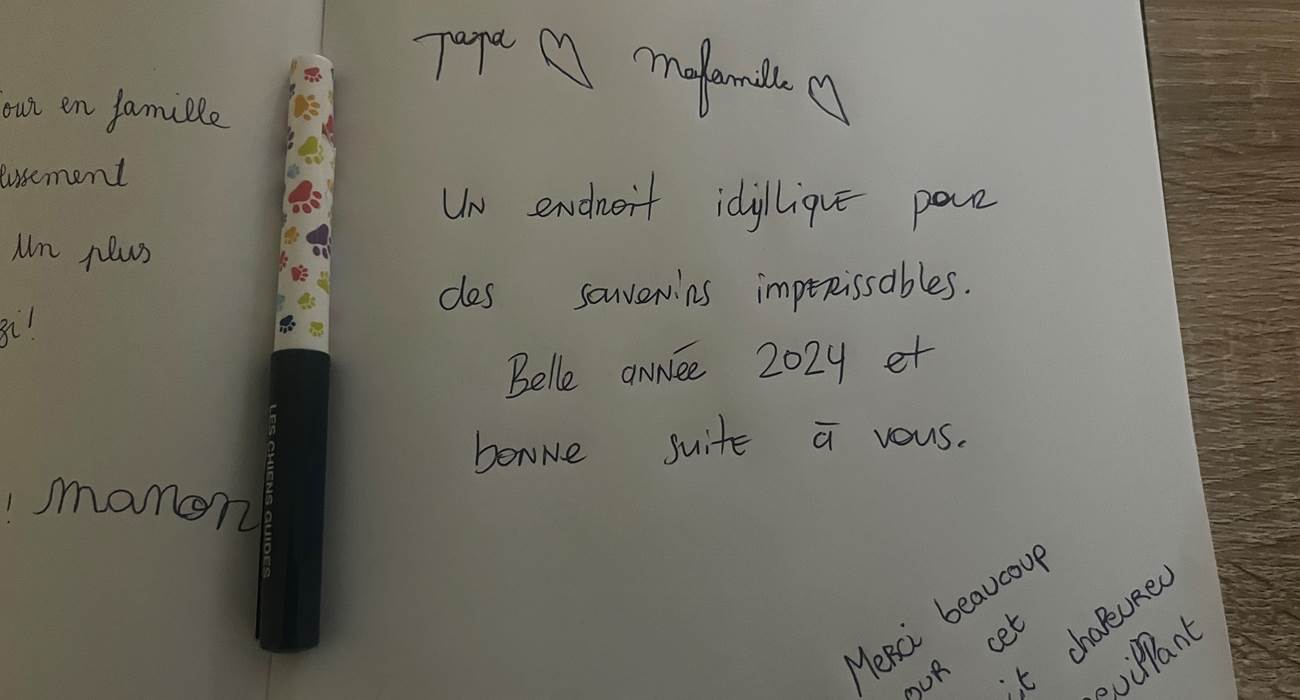 our en famille
issement
Un plus
gi!
! Manon
LES CHIENS GUIDES
Papa ♡ Ma famille ♡
Un endroit idyllique pour
des souvenirs imperissables.
Belle année 2024 et
bonne suite à vous.
Merci beaucoup
our cet
it chaleureu
veillant